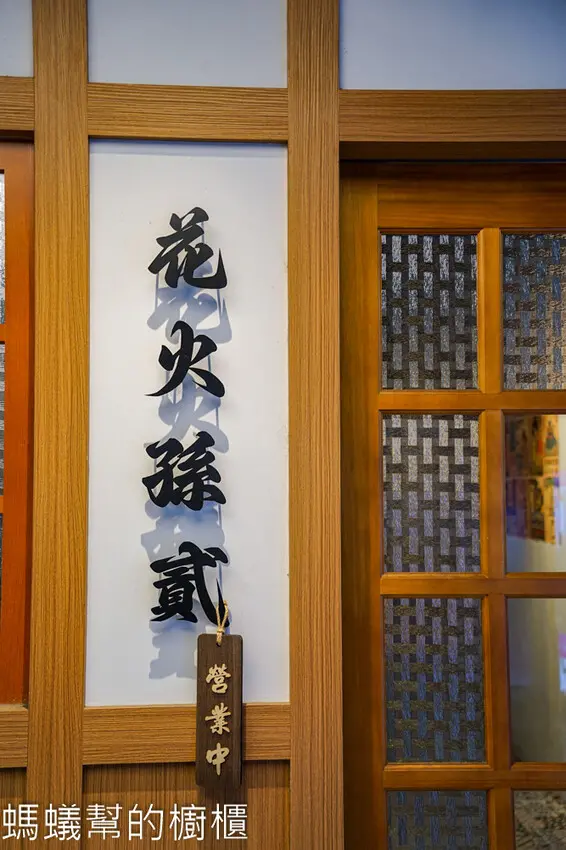 花火孫貳
營業中
螞蟻幫的櫥櫃